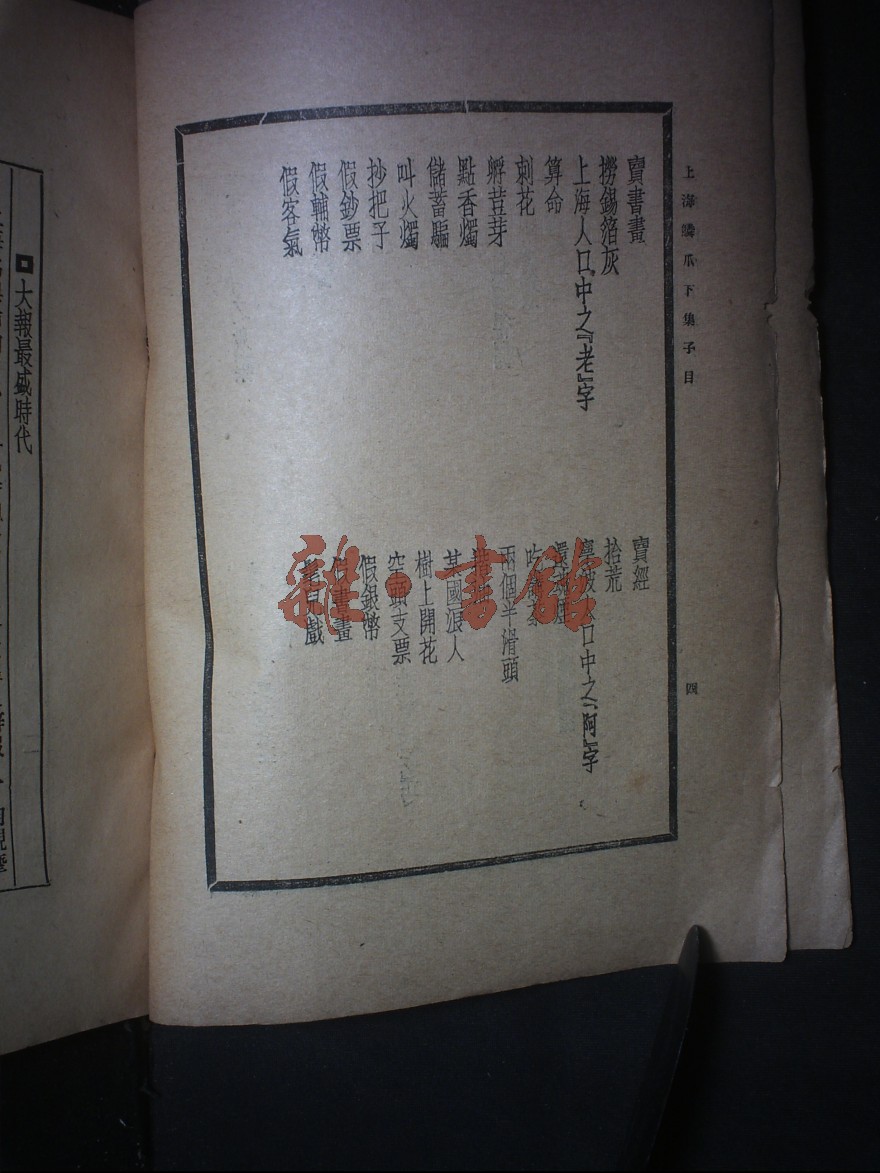 上海鱗爪下集子目
四
賣書畫
撈錫箔灰
上海人口中之『老』字
算命
刺花
孵荳芽
點香燭
儲蓄騙
叫火燭
抄把子
假鈔票
假輔幣
假客氣
賣經
拾荒
人口中之『阿』字
兩個半滑頭
某國浪人
樹上開花
空頭支票
假銀幣
假書畫
戲
大報最盛時代
雜·書館